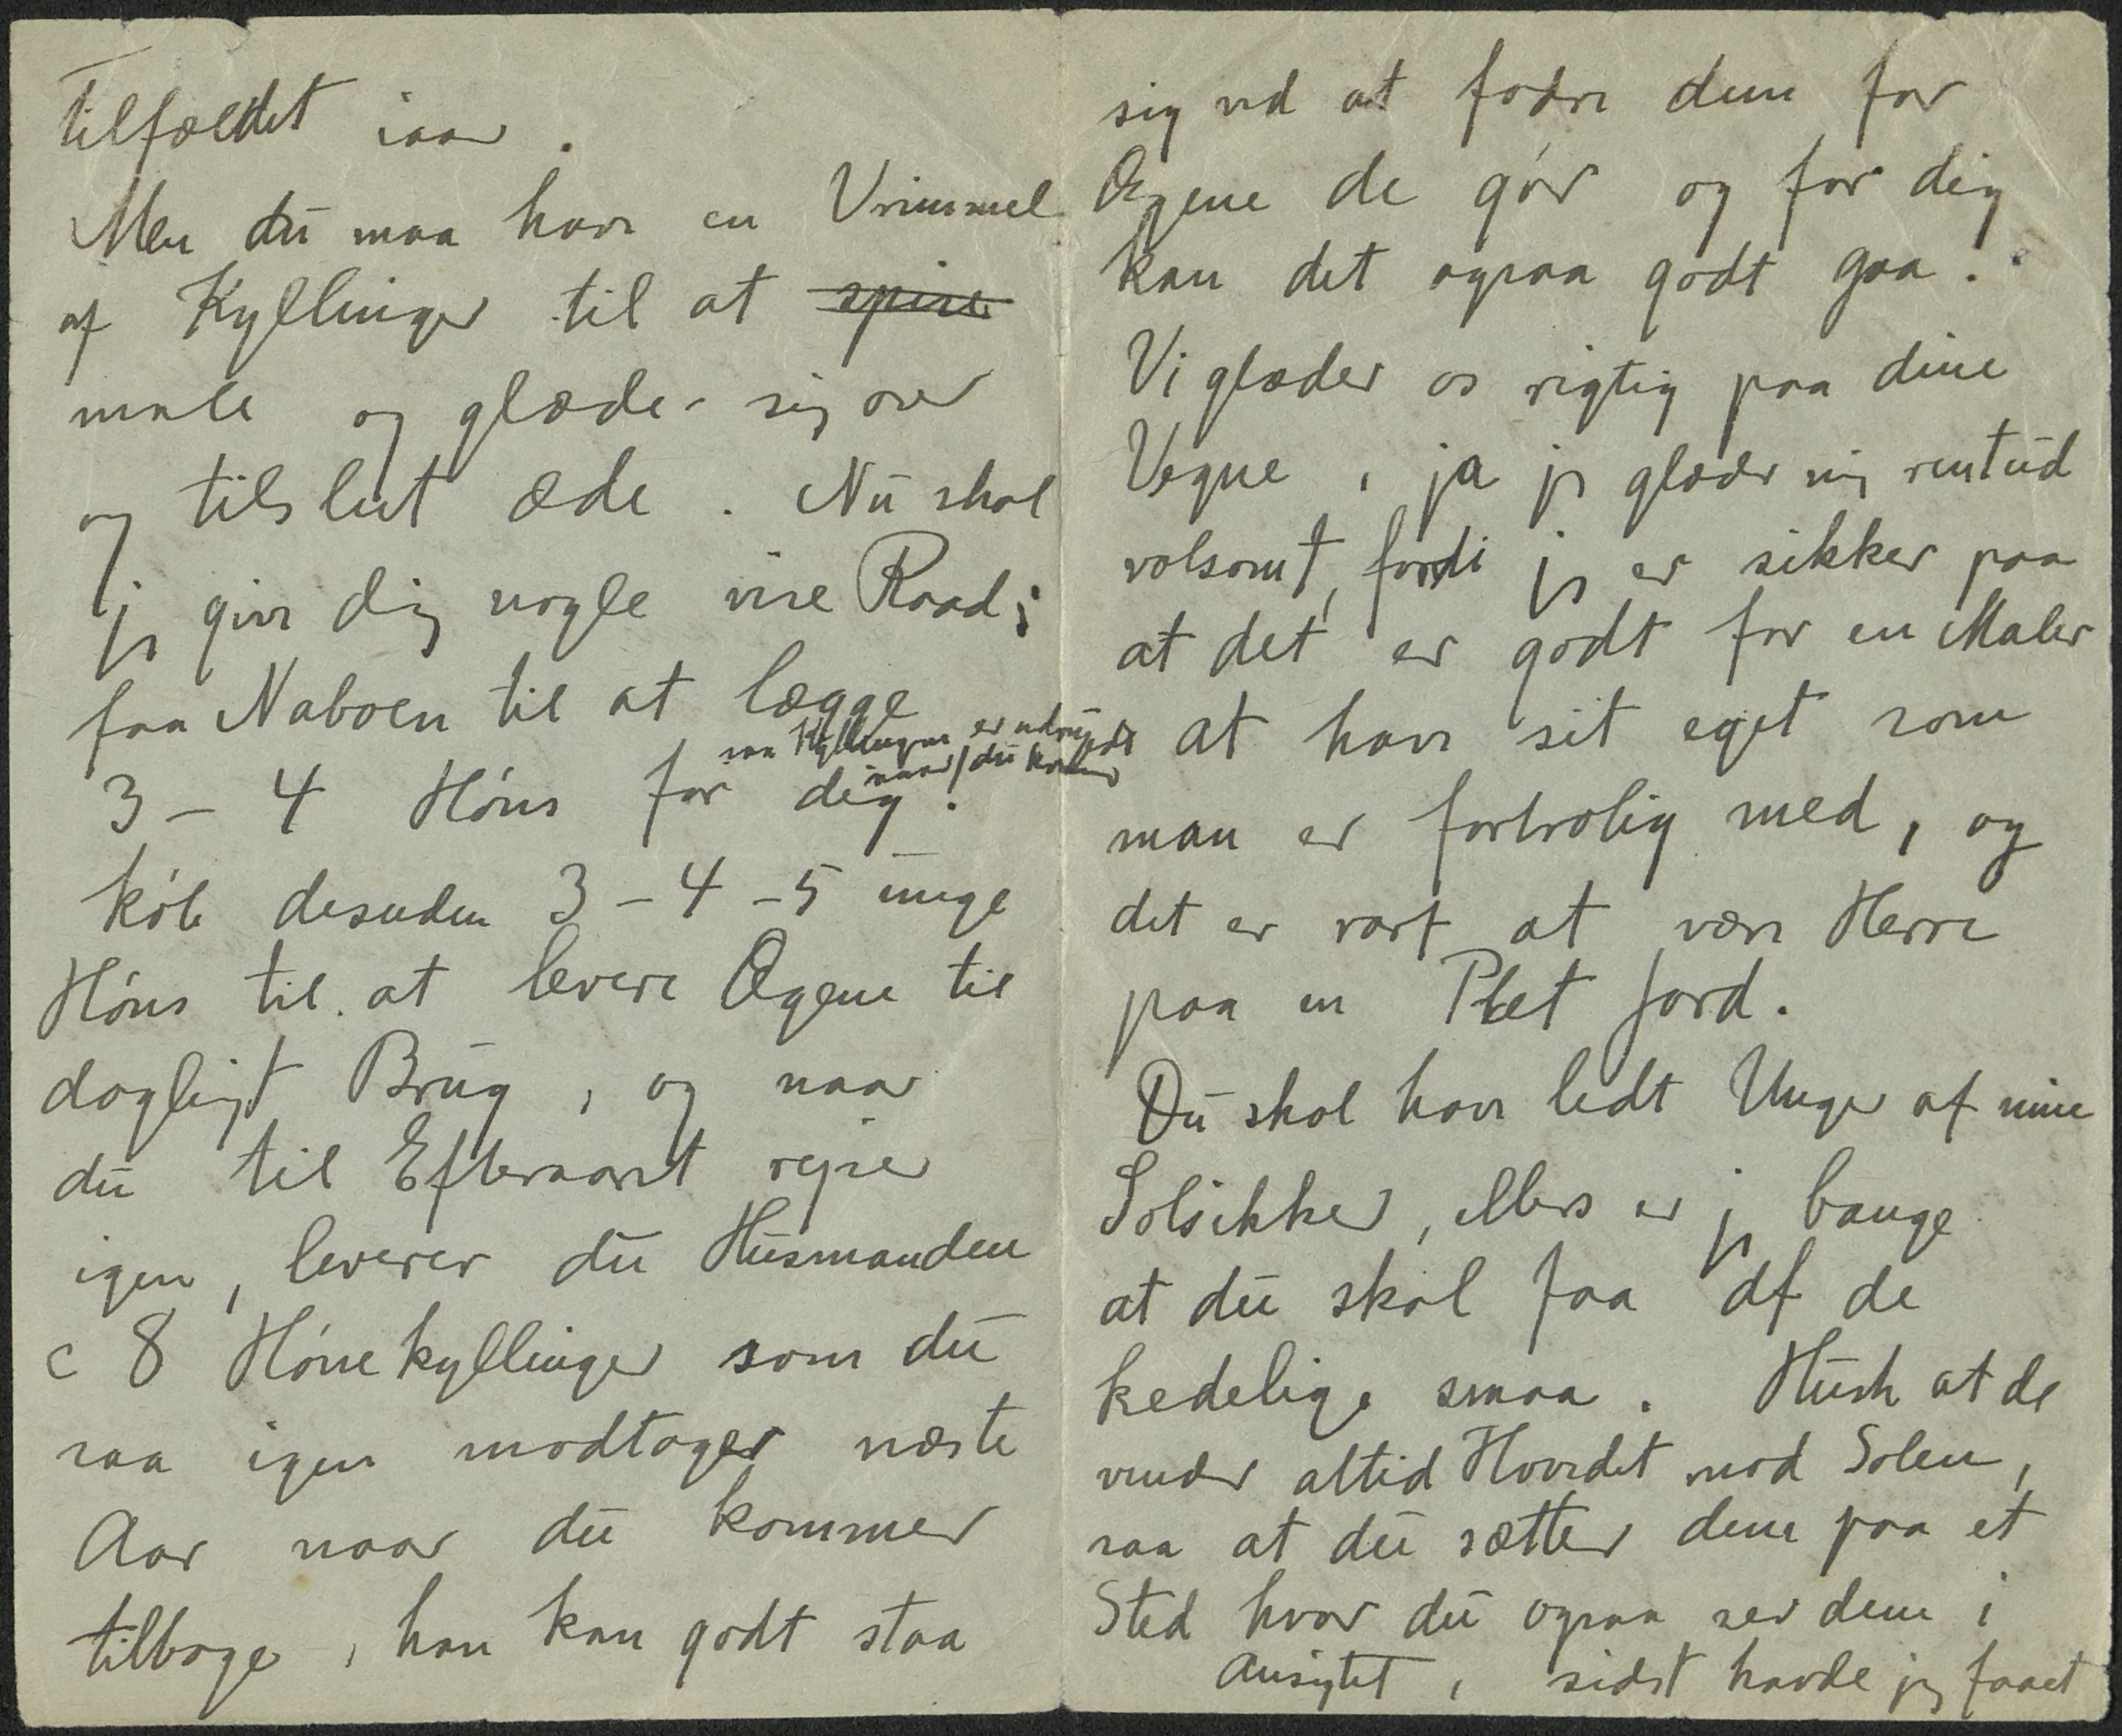 Tilfældet iaar.
Men du maa have en Vrimmel
af Kyllinger til at ~~spise~~
male og glæde sig over
og tilslut æde. Nu skal
jeg give dig nogle vise Raad;
faa Naboen til at lægge
saa Kyllingerne er udrugede
naar du kommer
3 – 4 Høns for dig.
køb desuden 3 – 4 – 5 unge
Høns til at levere Ægene til
dagligt Brug, og naar
du til Efteraaret rejser
igen, leverer du Husmanden
c 8 Hønekyllinger som du
saa igen modtager næste
Aar naar du kommer
tilbage, han kan godt staa
sig ved at fodre dem for
Ægene de gør og for dig
kan det ogsaa godt gaa.
Vi glæder os rigtig paa dine
Vegne, ja jeg glæder mig rentud
volsomt, fordi jeg er sikker paa
at det er godt for en Maler
at have sit eget som
man er fortrolig med, og
det er rart at være Herre
paa en Plet Jord.
Du skal have ledt Unger af mine
Solsikker, ellers er jeg bange
at du skal faa af de
kedelige smaa. Husk at de
vender altid Hovedet mod Solen,
saa at du sætter dem paa et
Sted hvor du ogsaa ser dem i
Ansigtet, sidst havde jeg faaet